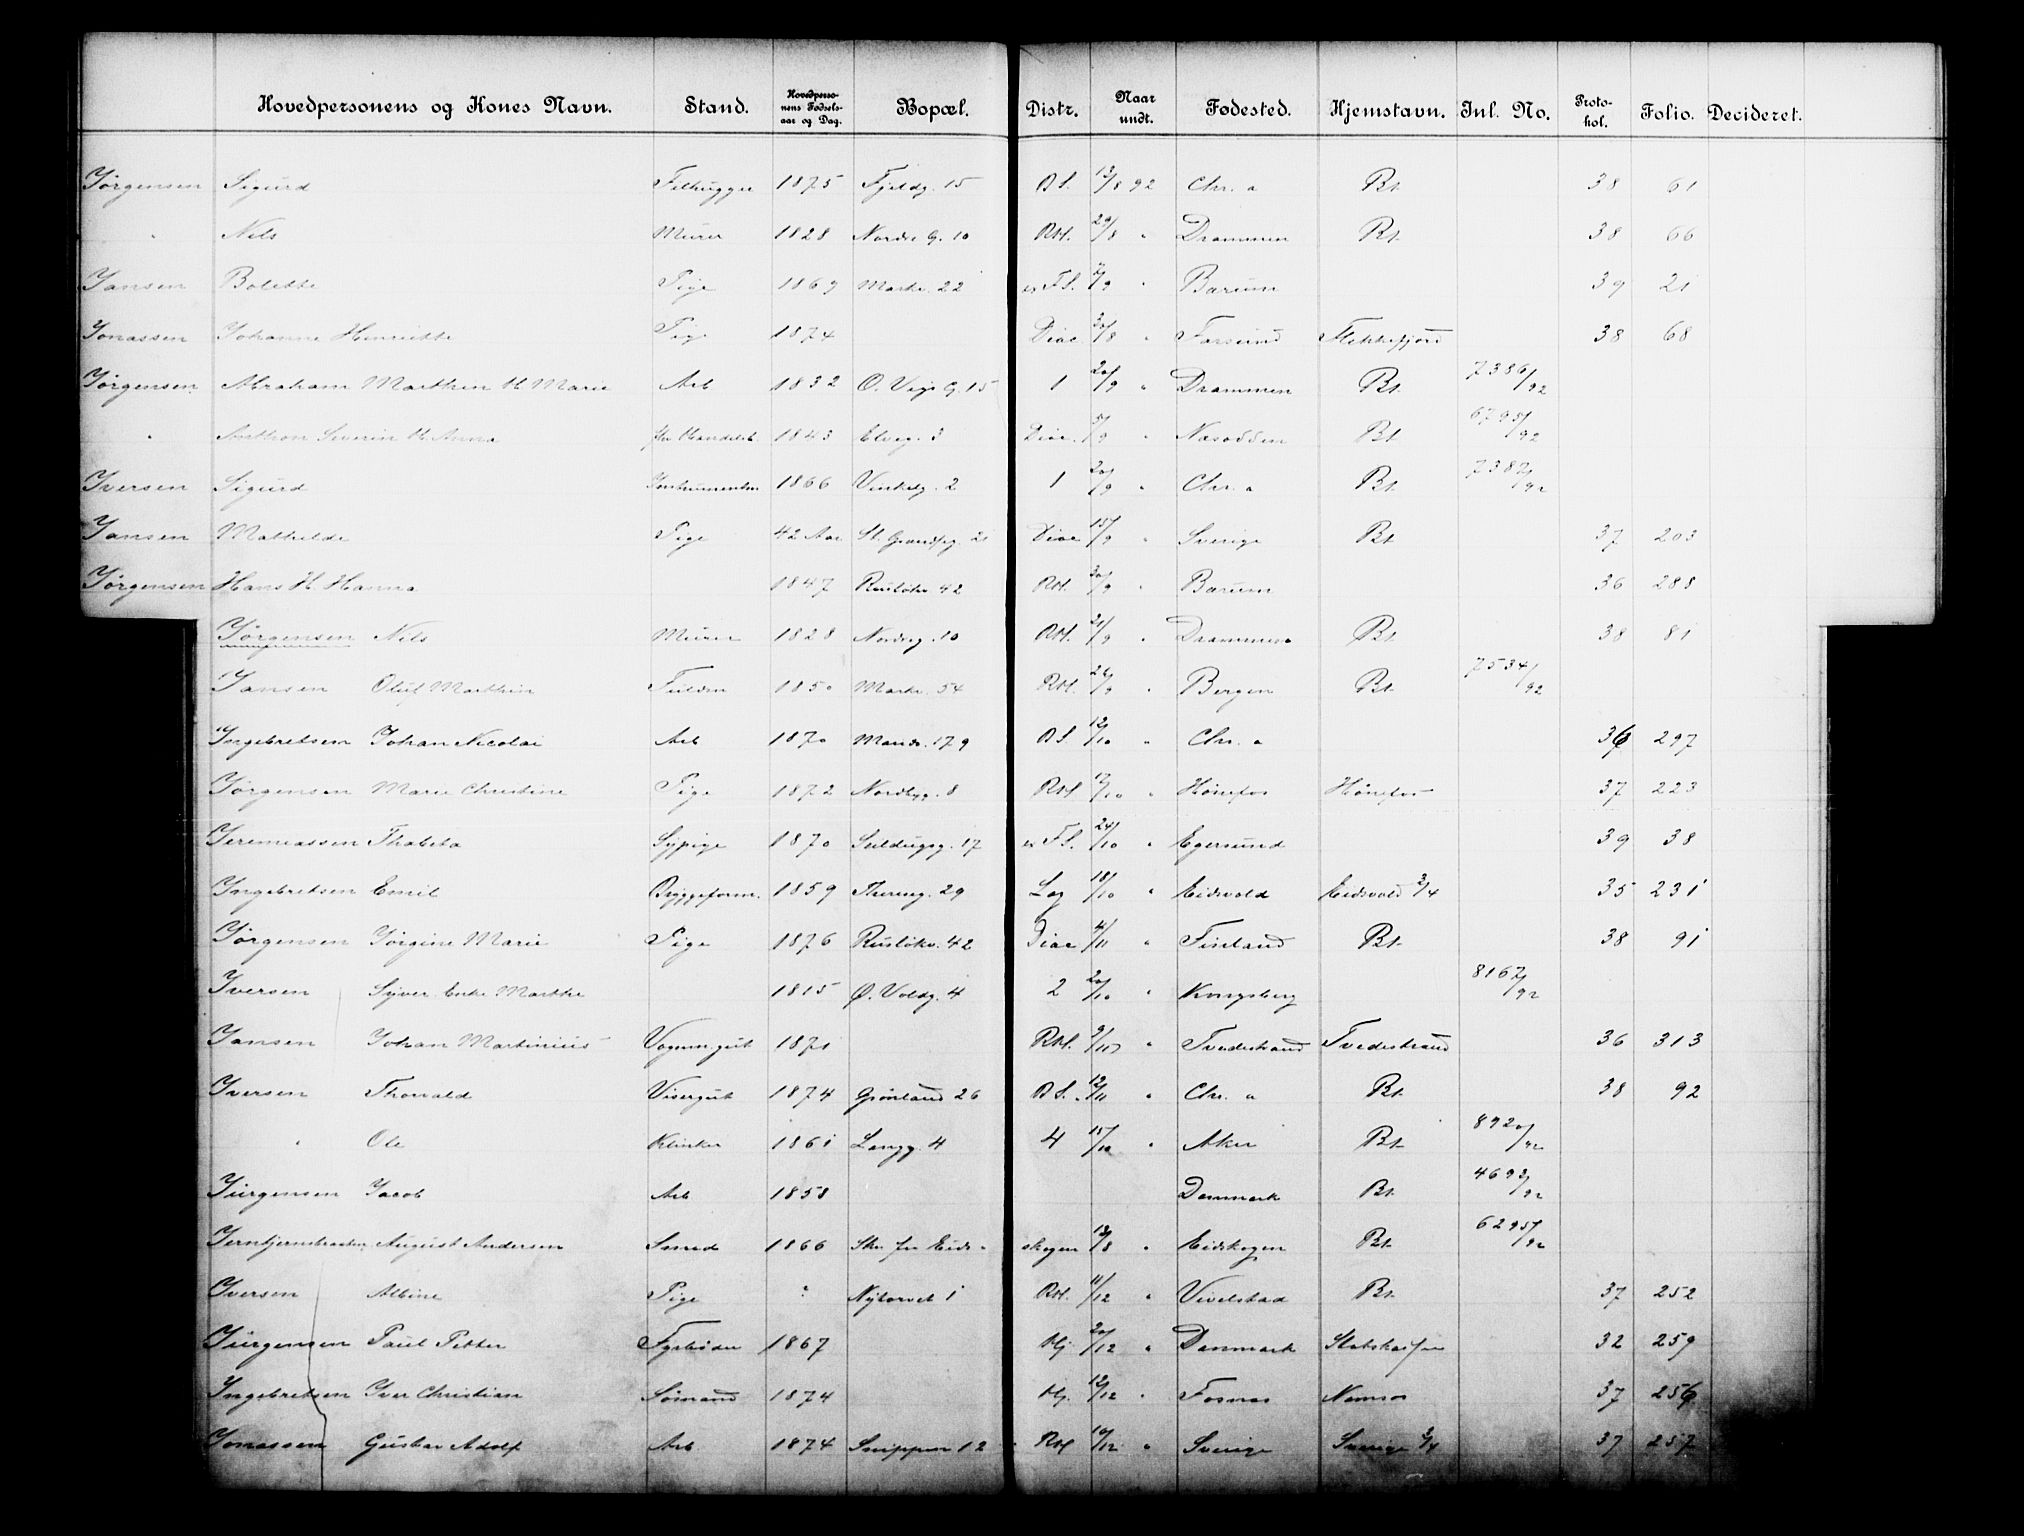 Hovedpersonens og Kones Navn. Stand. Hovedperso-nens Fødsels-aar og Dag. Bopæl. Distr. Naar undt. Fødested. Hjemstavn. Inl. No. Proto-kol. Folio. Decideret.
Jørgensen Sigurd Filhugger 1875 Fjeldg. 15 BS. 13/8 92 Chr. a Bt. 38 61
" Nils Murer 1828 Nordre G. 10 RH. 29/8 " Drammen Bt. 38 66
Jansen Bolette Pige 1869 Markv. 22 FS. 2/9 " Bærum 39 21
Jonassen Johanne Henriette Pig 1874 Diac. 30/8 " Farsund Flekkefjord 38 68
Jørgensen Abraham Marthin H. Marie Arb 1832 O. Vejs G. 15 1 20/9 " Drammen Bt. 7386/92
" Anthon Severin H. Anna 1843 Elveg. 3 Diac. 5/9 " Næsodden Bt. 6795/92
Iversen Sigurd Instrumentm 1866 Vinkelg. 2 1 20/9 " Chr. a Bt. 7387/92
Jansen Mathilde Pige 42 Aar St. Grændseg. 21 Diac 15/9 " Sverige Bt. 37 203
Jørgensen Hans H. Hanna 1847 Rusløkv 42 RH. 30/9 " Bærum 36 288
Jørgensen Nils Murer 1828 Nordreg. 10 RH. 21/9 " Drammen Bt. 38 81
Jansen Oluf Marthin 1850 Markv. 54 RH. 26/9 " Bergen Bt. 7534/92
Ingebretsen Johan Nicolai Arb 1870 Marids. 179 BS. 12/10 " Chr. a 36 297
Jørgensen Marie Christine Pige 1872 Nordbyg. 8 RH 17/10 " Hønefos Hønefos 37 223
Jeremiassen Thabita Sypige 1870 Seildugsg. 17 FS. 24/10 " Egersund 39 38
Ingebretsen Emil Byggeform. 1859 Thereseg. 29 Lag 18/10 " Eidsvold Eidsvold 3/4 35 231
Jørgensen Jørgine Marie Pige 1876 Rusløkv. 42 Diac 4/11 " Finland Bt. 38 91
Iversen Syver Enke Marthe 1815 Ø. Voldg. 4 2 20/10 " Kongsberg 8167/92
Jansen Johan Martinius Vognm.gut 1871 RH. 9/10 " Tvedestrand Tvedestrand 36 313
Iversen Thorvald Visergut 1874 Grønland 26 BS. 12/11 " Chr. a Bt. 38 92
" Ole Klinker 1861 Langg. 4 4 15/10 " Aker Bt. 8920/92
Jürgensen Jacob Arb 1858 Danmark Bt. 4693/92
August Andersen Smed 1866 Skr. fra Eids-skogen 13/8 " Eidskogen Bt. 6295/92
Iversen Albine Pige ? Nytorvet 1 RH. 11/12 " Vivelstad Bt. 37 252
Jürgensen Paul Petter Fyrbøder 1867 Hj 20/12 " Danmark Statskassen 32 259
Ingebretsen Iver Christian Sømand 1874 Hj. 12/12 " Fosnæs Namsos 37 256
Jonassen Gustav Adolf Arb 1874 Snippen 12 RH 10/12 " Sverige Sverige 3/4 37 257